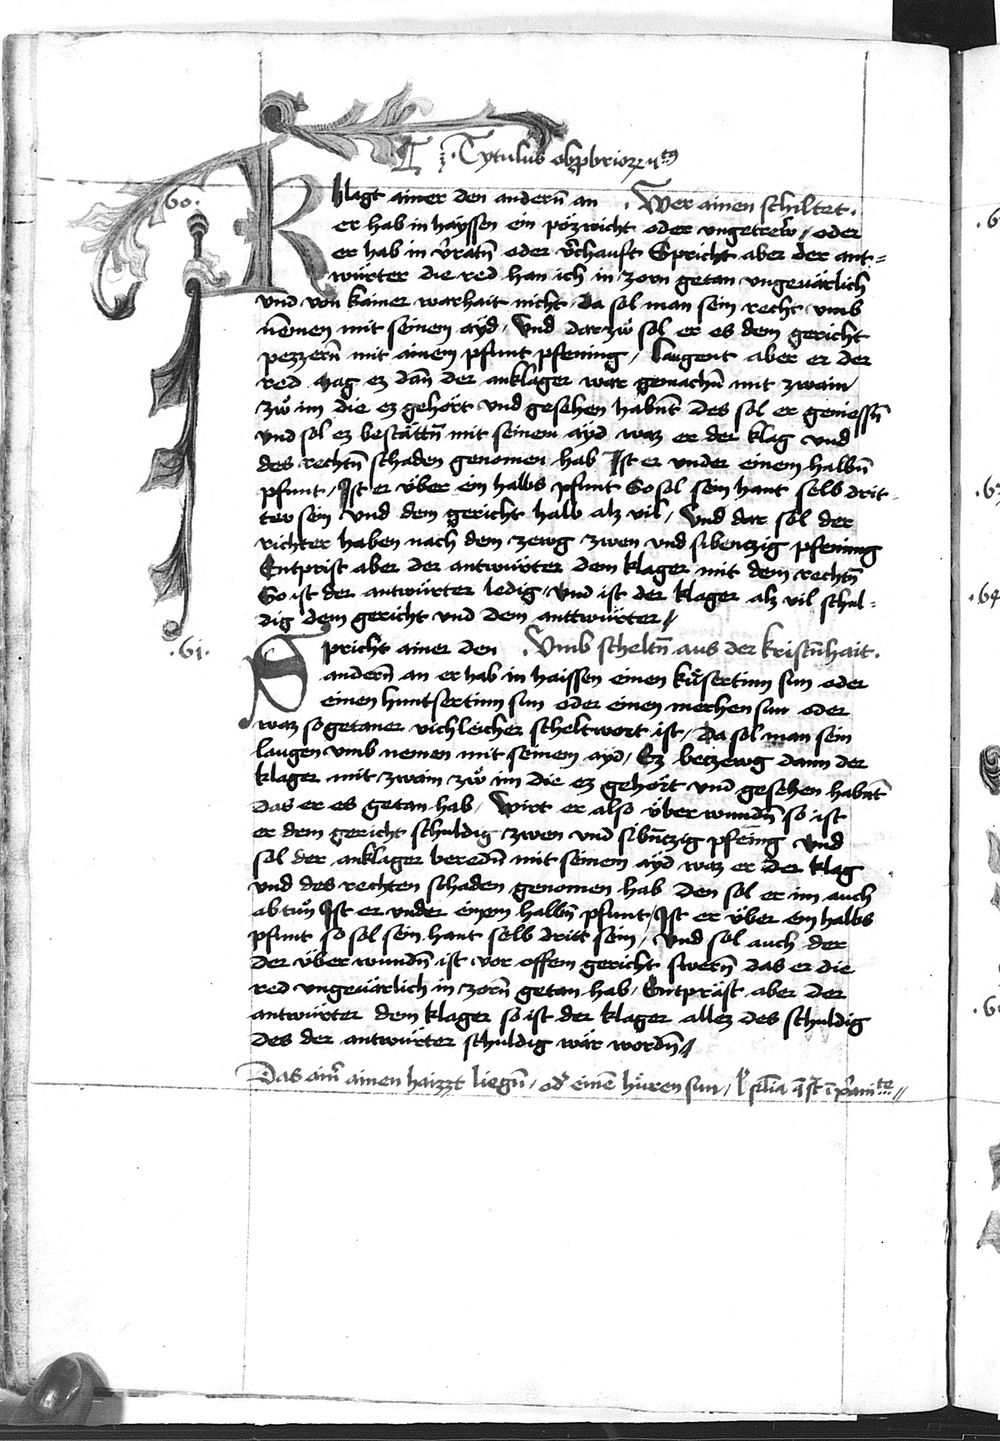 ¶ · Tytulus obprobriorum
·60·
Klagt ainer den andern̄ an · Wer ainen schiltet ·
er hab in hayssen ein pözwicht oder ungetrew / oder
er hab in v̄ratn̄ oder v̄chauft Spricht aber der ant=
würter die red han ich in zorn getan ungeuärlich
und von kainer warhait nicht da sol man sein recht umb
nemen mit seinem ayd / Und darzů sol er es dem gericht
pezzern̄ mit ainem pfunt pfening / laugent aber er der
red mag ez dan̄ der anklager war gemachn̄ mit zwain
zů im die ez gehört und gesehen habn̄t des sol er geniessn̄
und sol ez bestättn̄ mit seinem ayd waz er der klag und
des rechtn̄ schaden genomen hab Ist er under einem halbn̄
pfunt / Ist er über ein halbs pfunt So sol sein hant selb drit=
ter sein Und dem gericht halb alz vil / Und dar sol der
richter haben nach dem zewg zwen und sibenczig pfening
Entprist aber der antwürter dem klager mit dem rechtn̄
So ist der antwürter ledig / Und ist der klager alz vil schul=
dig dem gericht und dem anttwürter //
·61·
Spricht ainer den · Umb scheltn̄ aus der kristn̄hait ·
andern̄ an er hab in haissen einen kůsertinn sun oder
einen huntsertinn sun oder einen merhen sun oder
waz sogetaner vichleicher scheltwort ist / Da sol man sein
laugen umb nemen mit seinem ayd / Ez beczewg dann der
klager mit zwain zů im die ez gehört und gesehen habn̄t
das er es getan hab / Wirt er also über wundn̄ so ist
er dem gericht schuldig zwen und sibn̄tzig pfeing und
sol der anklager beredn̄ mit seinem ayd waz er der klag
und des rechten schaden genomen hab den sol er im auch
ab tun̄ Ist er under einem halbn̄ pfunt / Ist er über ein halbs
pfunt so sol sein hant selb dritt sein / Und sol auch der
der über wundn̄ ist vor offem gericht swern̄ das er die
red ungeuärlich in zorn̄ getan hab / Entpräst aber der
antwürter dem klager so ist der klager allez des schuldig
des der antwürter schuldig wär wordn̄ //
Das ainr̄ ainen haizzt liegn̄ / od̄ einē hůren sun /